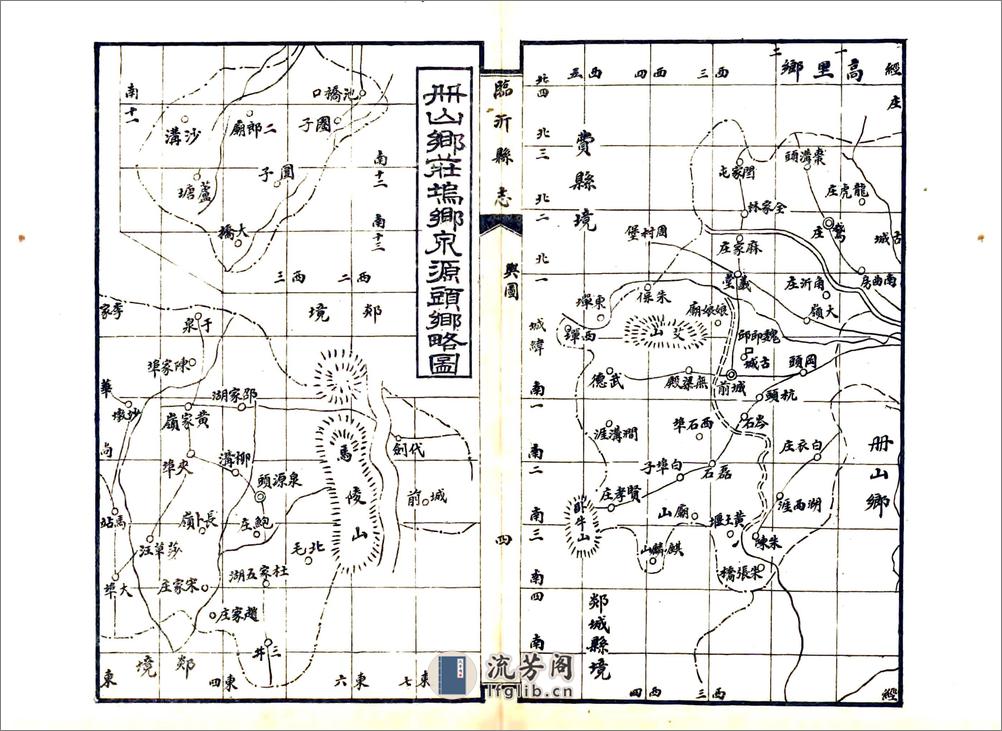 冊山鄉莊塢鄉泉源頭鄉略圖
臨沂縣志
輿圖
四
高里鄉
一
二
西三
西四
西五
北四
北三
北二
北一
經
庄
費縣境
棗溝頭
龍虎庄
古城
南曲房
角沂庄
大嶺
全家林
麻家庄
義堂
周村堡
朱保
東墠
西墠
城緯
艾山
娘娘廟
古城
岡頭
城前
武德
無梁殿
杭頭
岑石
西石埠
澗溝涯
白衣庄
冊山鄉
南一
南二
南三
南四
南
白埠子
磊石
賢孝庄
廟山
黃土堰
湖西涯
朱陳
卧牛山
麒麟山
朱張橋
郯城縣境
西四
西三
經
南十一
南十二
南十三
池橋口
園子
二郎廟
沙溝
蘆塘
園子
大橋
西三
西二
郯境
李家
于泉
陳家埠
華
沙墩
黃家嶺
邵家湖
馬陵山
代劍
城前
央埠
柳溝
泉源頭
尚
馬站
長嶺
鮑庄
北毛
莎草汪
大埠
宋家庄
杜家五湖
趙家庄
三井
郯境
東
東四
東六
東七
流芳阁
lfglib.cn